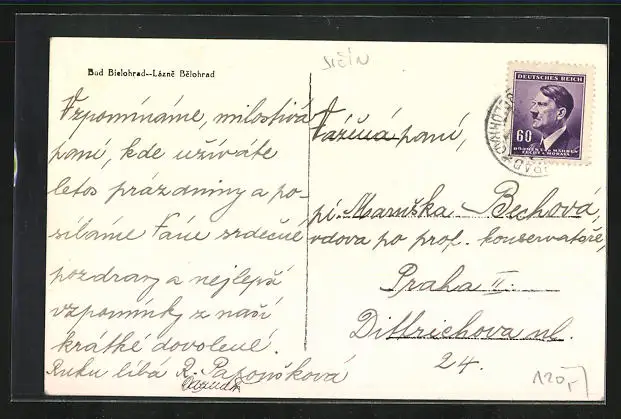 JIČÍN
Bad Bielohrad--Lázně Bělohrad
Vzpomínáme, milostivá
paní, kde užíváte
letos prázdniny a po-
síláme Vám srdečné
pozdravy a nejlepší
vzpomínky z naší
krátké dovolené.
Ruku líbá R.
Vážená paní,
pí. Maruška Bechová,
vdova po prof. konservatoře,
Praha II.
Dittrichova ul.
24.
DEUTSCHES REICH
60
BÖHMEN u. MÄHREN
ČECHY A MORAVA
120,-